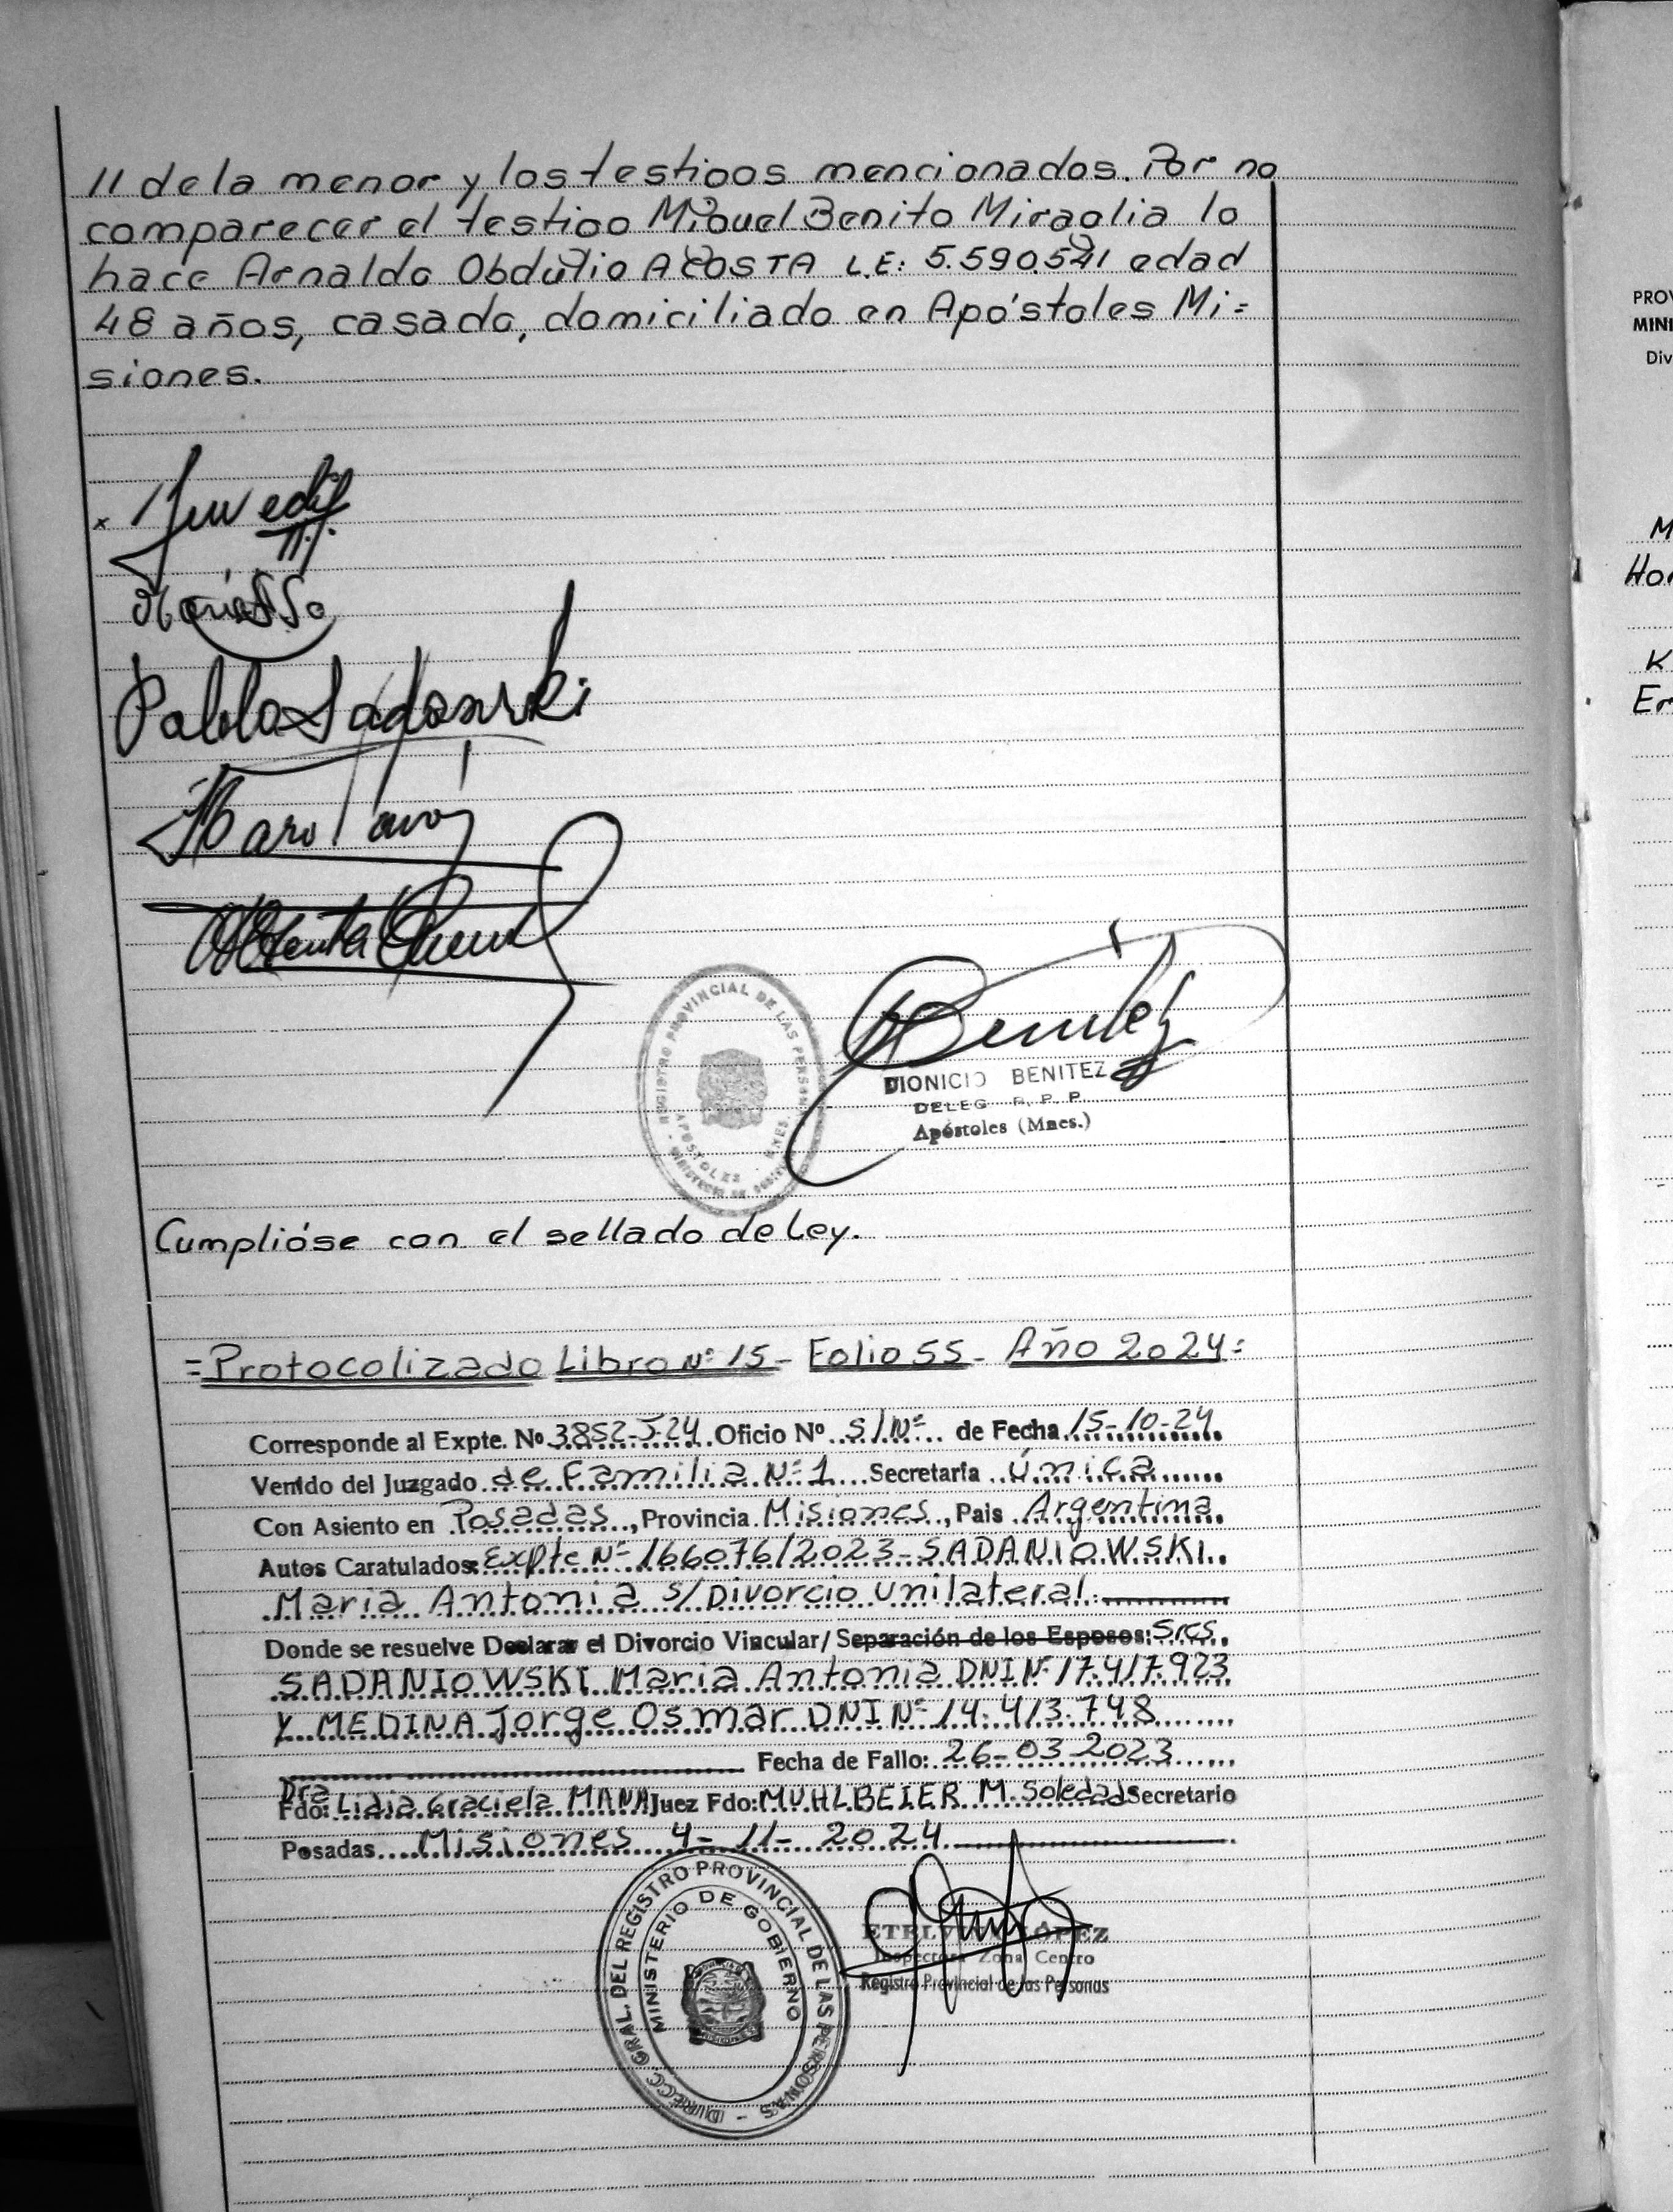 11 de la menor y los testigos mencionados. Por no
comparecer el testigo Miguel Benito Miraglia lo
hace Arnaldo Obdulio ACOSTA L.E: 5.590.541 edad
48 años, casado, domiciliado en Apóstoles Mi=
siones.
x
Pablo Sadowski
REGISTRO PROVINCIAL DE LAS PERSONAS
APOSTOLES - MNES
Benitez
DIONICIO BENITEZ
DELEG R. P. P.
Apóstoles (Mnes.)
Cumplióse con el sellado de Ley.
=Protocolizado Libro Nº 15- Folio 55- Año 2024=
Corresponde al Expte. Nº 3852-5-24 Oficio Nº S/Nº de Fecha 15-10-24
Venido del Juzgado de Familia Nº 1 Secretaría única
Con Asiento en Posadas, Provincia Misiones, Pais Argentina
Autos Caratulados: Expte Nº 166076/2023-SADANIOWSKI
Maria Antonia s/Divorcio unilateral.
Donde se resuelve Declarar el Divorcio Vincular/ Separación de los Esposos: Sres.
SADANIOWSKI Maria Antonia DNI Nº 17.417.923
Y MEDINA Jorge Osmar DNI Nº 14.413.748
Fecha de Fallo: 26-03-2023
Dra
Fdo: Lidia Graciela MANA Juez Fdo: MUHLBEIER M. Soledad Secretario
Posadas Misiones 4-11-2024
DIRECC. GRAL. DEL REGISTRO PROVINCIAL DE LAS PERSONAS -
MINISTERIO DE GOBIERNO
LÓPEZ
Inspectora Zona Centro
Registro Provincial de las Personas
PROV
MINI
Div
M
Hor
K
Er